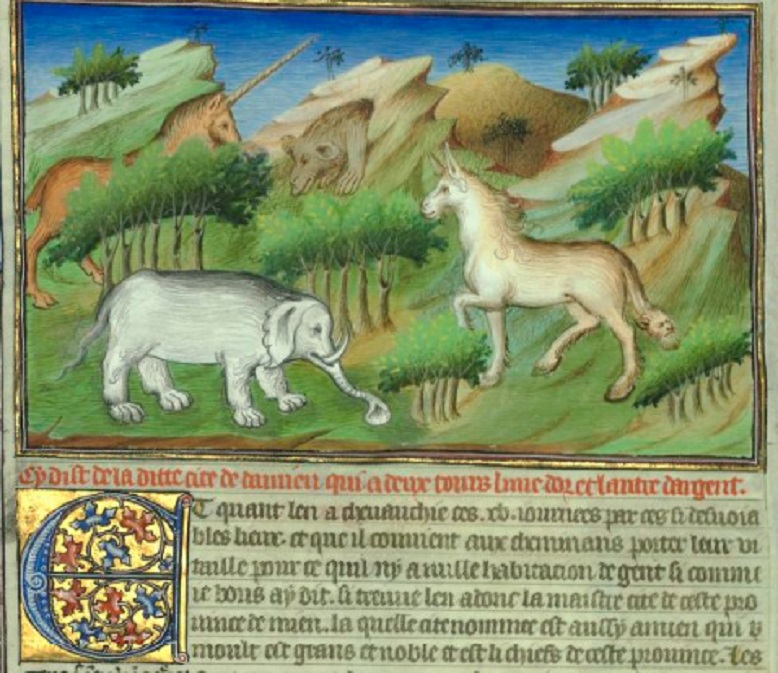 Cy dist de la ditte cite de damien qui a deux tours lune dor et lautre dargent.
Et quant len a cheuauchie ces .xv. iournees par ces si desuoia
bles lieux. et que il conuient aux cheminans porter leur vi
taille pour ce quil ny a nulle habitacion de gent si comme
ie vous ay dit. si treuue len adonc la maistre cite de ceste pro
uince de mien. la quelle cite nommee est aussy amien qui
moult est grans et noble et est li chiefs de ceste prouince. Les